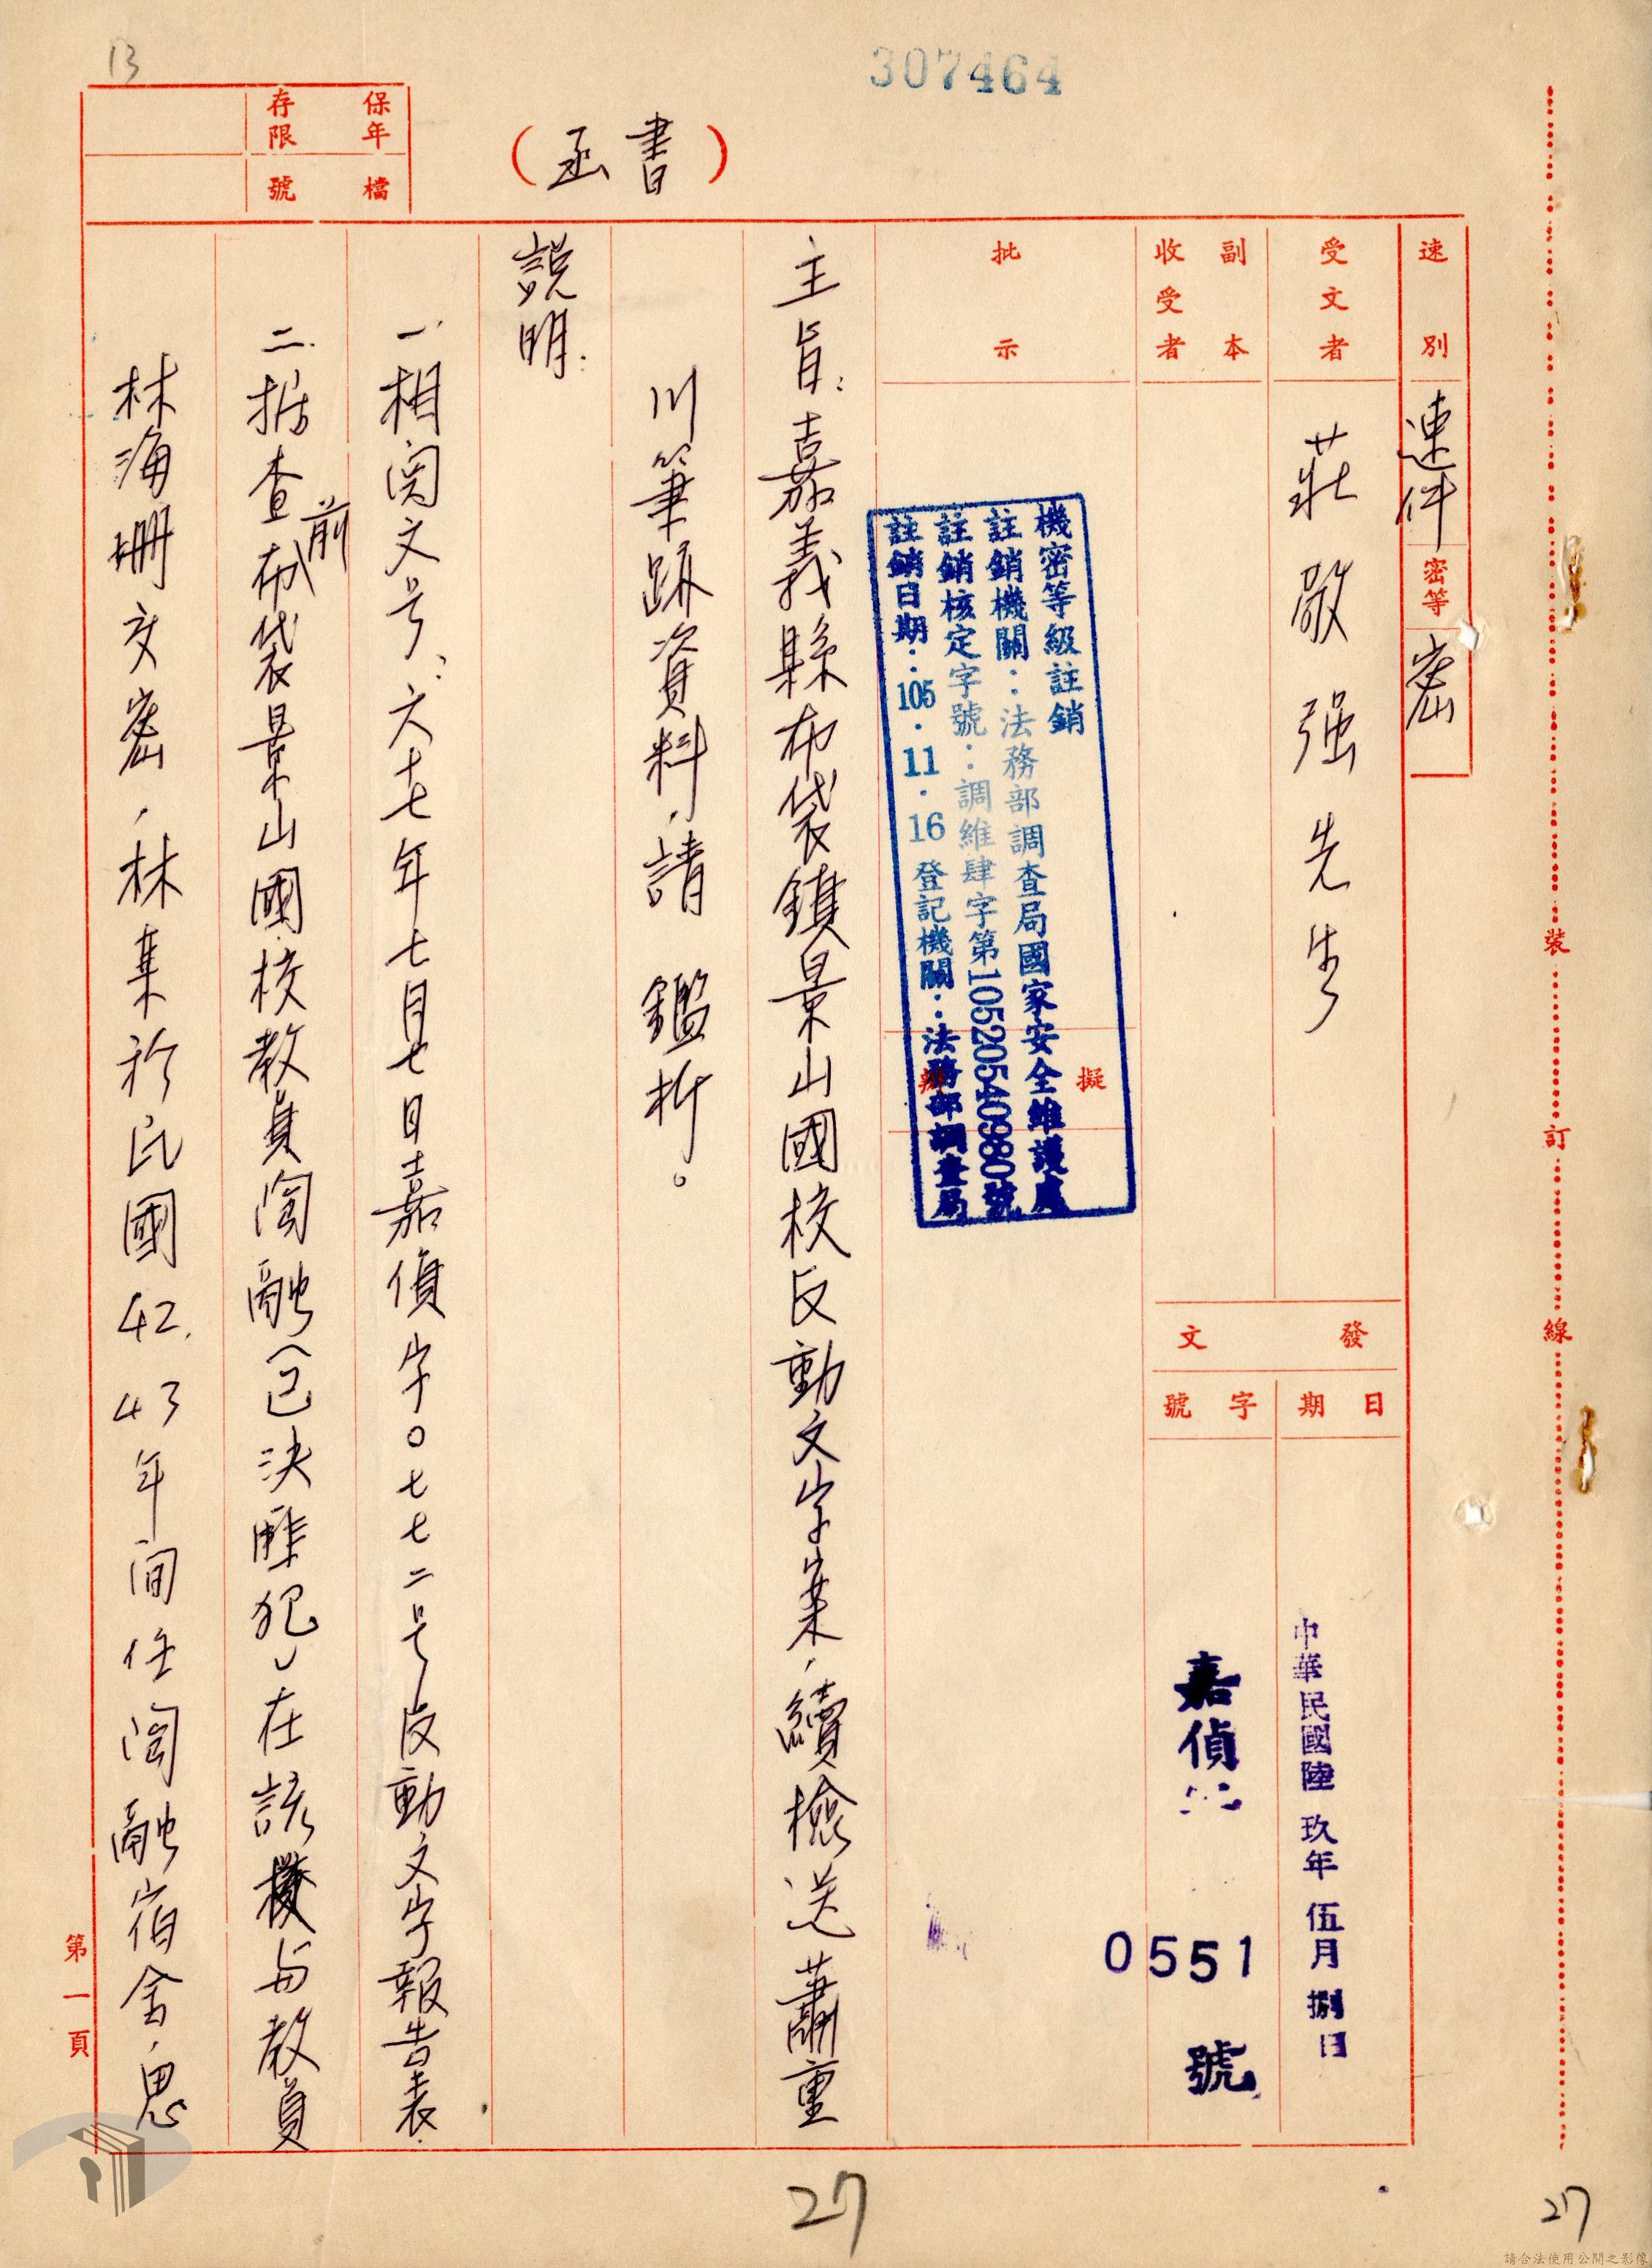 13
307464
（書函）
保存年限
檔號
速別
速件
密等
密
受文者
莊敬强先生
副本收受者
發文
日期
中華民國陸玖年伍月捌日
字號
嘉偵
0551
號
批示
擬辦
機密等級註銷
註銷機關：法務部調查局國家安全維護處
註銷核定字號：調維肆字第10520540980號
註銷日期：105．11．16登記機關：法務部調查局
主旨：嘉義縣布袋鎮景山國校反動文字案，續檢送蕭重
川筆跡資料，請 鑑析。
說明：
一、相関文号：六十七年七月七日嘉偵字〇七七二号反動文字報告表。
二、据查前布袋景山國校教員陶融（已決匪犯）在該校与教員
林海珊交密，林某於民國42.43年间任陶融宿舍，思
第一頁
裝訂線
27
27
請合法使用公開之影像